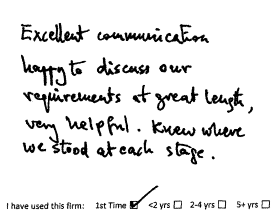 Excellent communication
happy to discuss our
requirements at great length,
very helpful. Knew where
we stood at each stage.
I have used this firm: 1st Time ☑ <2 yrs ☐ 2-4 yrs ☐ 5+ yrs ☐